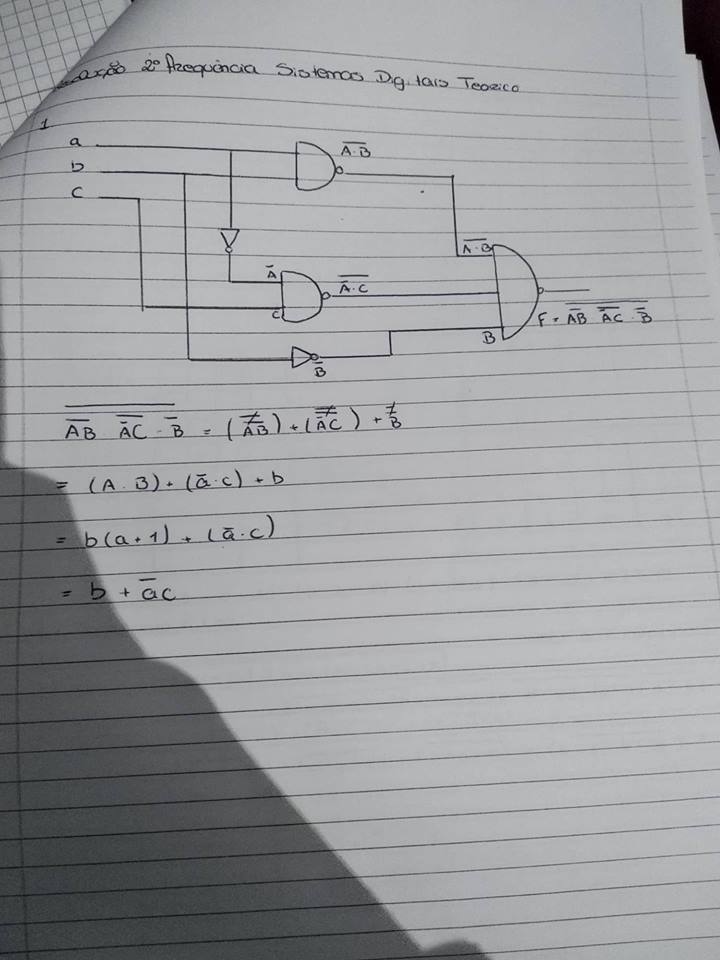 2º Frequência Sistemas Digitais Teorico
1
a
b
c
A̅·̅B̅
A̅·̅B̅
A̅
C
A̅̅·̅C̅
B
B̅
F = \overline{\overline{AB} · \overline{\overline{A}C} · \overline{B}}
\overline{\overline{AB} · \overline{\overline{A}C} · \overline{B}} = (\overline{\overline{AB}}) + (\overline{\overline{\overline{A}C}}) + \overline{\overline{B}}
= (A · B) + (a̅ · c) + b
= b(a + 1) + (a̅ · c)
= b + a̅c